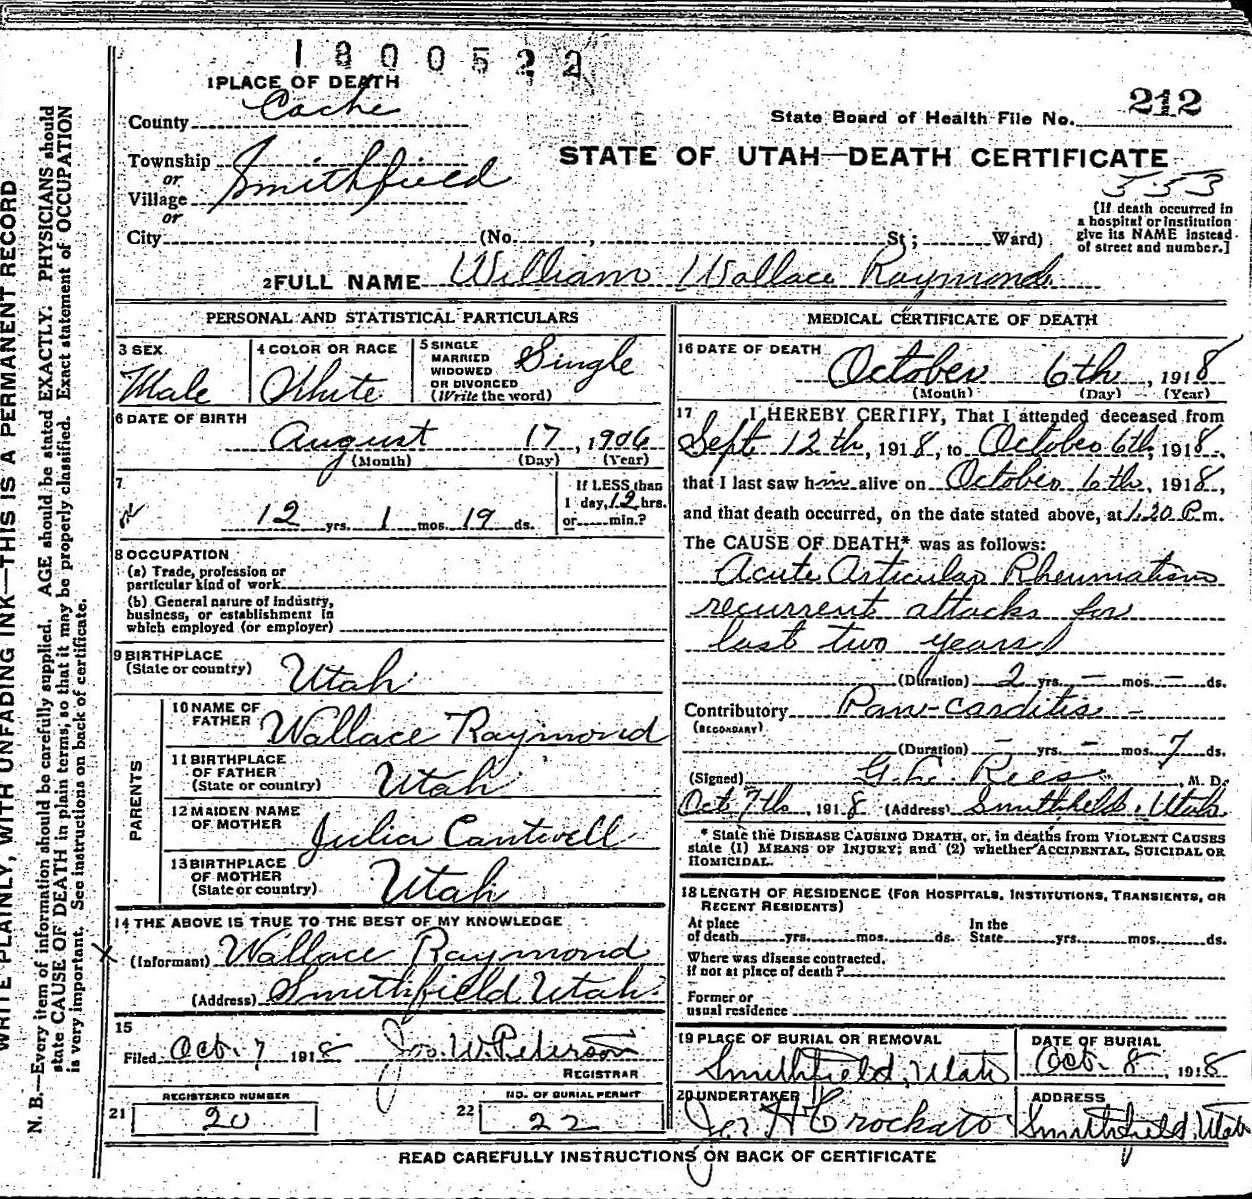 1800522
1 PLACE OF DEATH
County Cache
State Board of Health File No. 212
Township
or
Village Smithfield
or
STATE OF UTAH—DEATH CERTIFICATE
553
City (No. , St; Ward)
[If death occurred in
a hospital or institution
give its NAME instead
of street and number.]
2 FULL NAME William Wallace Raymond
PERSONAL AND STATISTICAL PARTICULARS
3 SEX Male
4 COLOR OR RACE White
5 SINGLE
MARRIED
WIDOWED
OR DIVORCED
(Write the word) Single
6 DATE OF BIRTH
August 17, 1906
(Month) (Day) (Year)
7
12 yrs. 1 mos. 19 ds.
If LESS than
1 day, 12 hrs.
or min.?
8 OCCUPATION
(a) Trade, profession or
particular kind of work
(b) General nature of industry,
business, or establishment in
which employed (or employer)
9 BIRTHPLACE
(State or country) Utah
PARENTS
10 NAME OF
FATHER Wallace Raymond
11 BIRTHPLACE
OF FATHER
(State or country) Utah
12 MAIDEN NAME
OF MOTHER Julia Cantwell
13 BIRTHPLACE
OF MOTHER
(State or country) Utah
14 THE ABOVE IS TRUE TO THE BEST OF MY KNOWLEDGE
(Informant) Wallace Raymond
(Address) Smithfield Utah
15
Filed Oct. 7 1918 Jos. W. Peterson
REGISTRAR
REGISTERED NUMBER
21 20
NO. OF BURIAL PERMIT
22 22
MEDICAL CERTIFICATE OF DEATH
16 DATE OF DEATH
October 6th, 1918
(Month) (Day) (Year)
17 I HEREBY CERTIFY, That I attended deceased from
Sept 12th, 1918, to October 6th, 1918,
that I last saw him alive on October 6th, 1918,
and that death occurred, on the date stated above, at 1.20 P.m.
The CAUSE OF DEATH* was as follows:
Acute Articular Rheumatism
recurrent attacks for
last two years
(Duration) 2 yrs. – mos. – ds.
Contributory Pan-carditis –
(SECONDARY)
(Duration) – yrs. – mos. 7 ds.
(Signed) G. L. Rees M. D.
Oct 7th, 1918 (Address) Smithfield, Utah
* State the DISEASE CAUSING DEATH, or, in deaths from VIOLENT CAUSES
state (1) MEANS OF INJURY; and (2) whether ACCIDENTAL, SUICIDAL OR
HOMICIDAL.
18 LENGTH OF RESIDENCE (FOR HOSPITALS, INSTITUTIONS, TRANSIENTS, OR
RECENT RESIDENTS)
At place
of death yrs. mos. ds.
In the
State yrs. mos. ds.
Where was disease contracted,
if not at place of death?
Former or
usual residence
19 PLACE OF BURIAL OR REMOVAL
Smithfield, Utah
DATE OF BURIAL
Oct. 8, 1918
20 UNDERTAKER
H Crockato
ADDRESS
Smithfield, Utah
READ CAREFULLY INSTRUCTIONS ON BACK OF CERTIFICATE
WRITE PLAINLY, WITH UNFADING INK—THIS IS A PERMANENT RECORD
N. B.—Every item of information should be carefully supplied. AGE should be stated EXACTLY. PHYSICIANS should
state CAUSE OF DEATH in plain terms, so that it may be properly classified. Exact statement of OCCUPATION
is very important. See instructions on back of certificate.